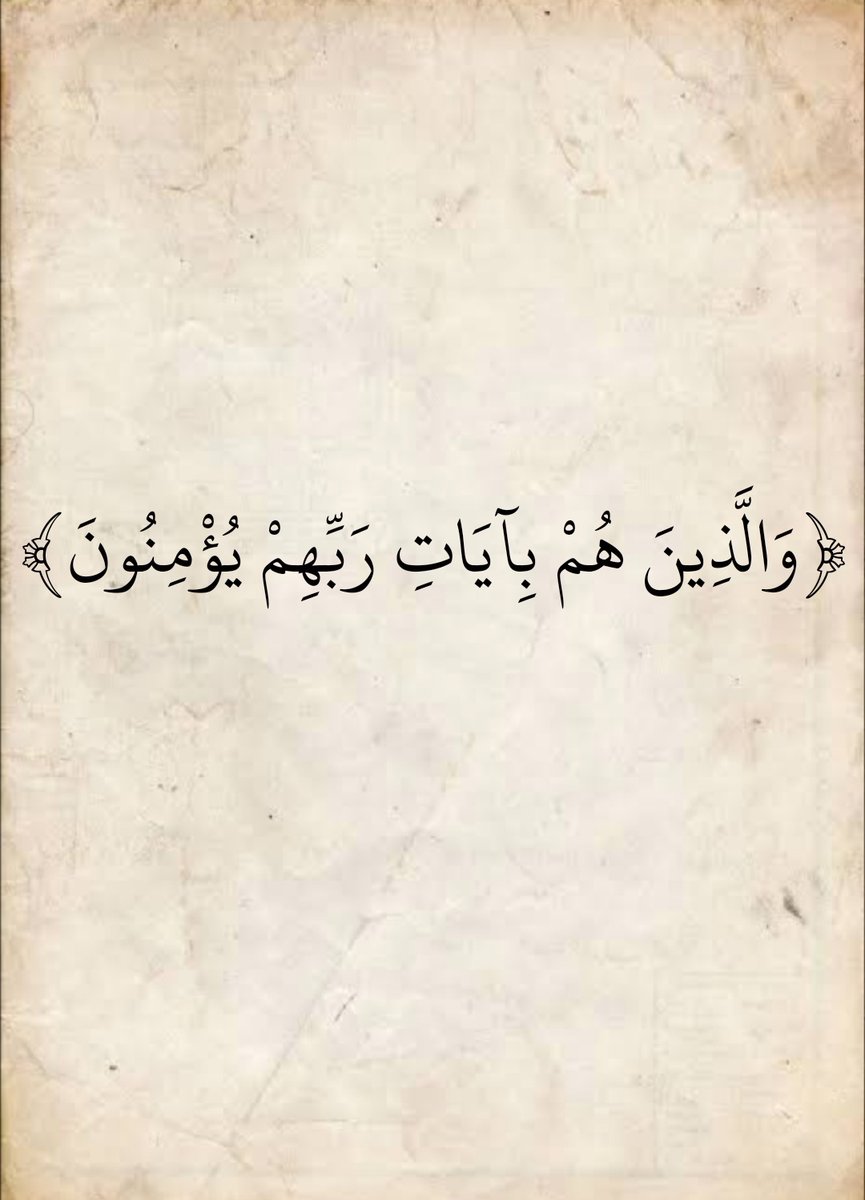 ﴿وَالَّذِينَ هُمْ بِآيَاتِ رَبِّهِمْ يُؤْمِنُونَ﴾